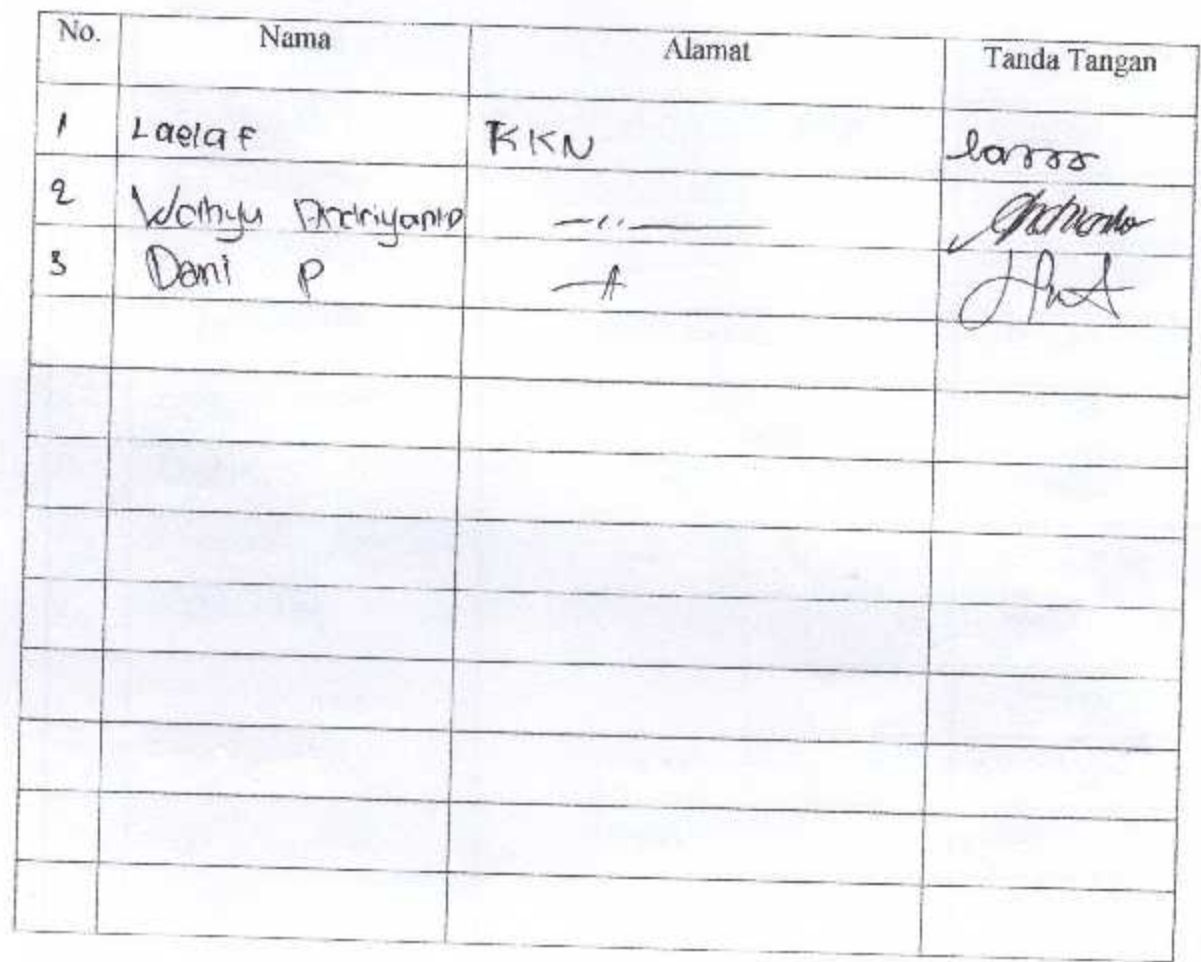 No. Nama Alamat Tanda Tangan
1 Laela F KKN
2 Wahyu Andriyanto -"-
3 Dani P